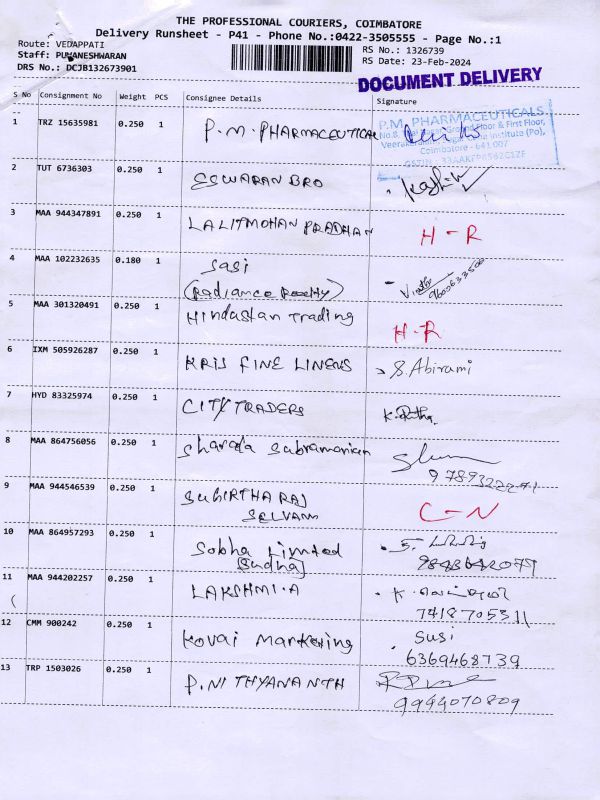 THE PROFESSIONAL COURIERS, COIMBATORE
Delivery Runsheet - P41 - Phone No.:0422-3505555 - Page No.:1
Route: VEDAPPATI
RS No.: 1326739
Staff: PUVANESHWARAN
RS Date: 23-Feb-2024
DRS No.: DCJB132673901
DOCUMENT DELIVERY
S No Consignment No Weight PCS Consignee Details Signature
1 TRZ 15635981 0.250 1 P.M. PHARMACEUTICAL
P.M. PHARMACEUTICALS
Ground Floor & First Floor,
Institute (Po),
Coimbatore - 641 007
2 TUT 6736303 0.250 1 ESWARAN BRO
3 MAA 944347891 0.250 1 LALITMOHAN PRADHAN H-R
4 MAA 102232635 0.180 1 Sasi
(Radiance Realty) 9600633500
5 MAA 301320491 0.250 1 Hindustan Trading H-R
6 IXM 505926287 0.250 1 KRIS FINE LINENS S. Abirami
7 HYD 83325974 0.250 1 CITY TRADERS
8 MAA 864756056 0.250 1 Sharada Subramanian
9789322271
9 MAA 944546539 0.250 1 SUBIRTHA RAJ
SELVAM C-N
10 MAA 864957293 0.250 1 Sobha Limited
[Sudha] 9843642079
11 MAA 944202257 0.250 1 LAKSHMI.A
7418705311
12 CMM 900242 0.250 1 Kovai Marketing Susi
6369468739
13 TRP 1503026 0.250 1 P.NITHYANANTH
9994070809